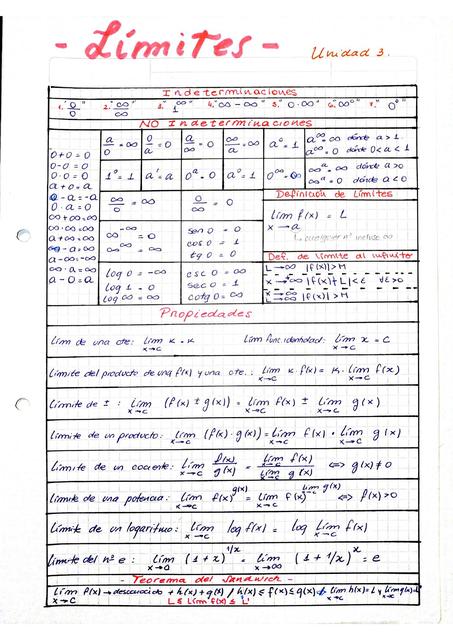 - Límites -
Unidad 3.
Indeterminaciones
1. "0/0" 2. "∞/∞" 3. "1^∞" 4. "∞-∞" 5. "0·∞" 6. "∞⁰" 7. "0⁰"
NO Indeterminaciones
0+0=0
0-0=0
0·0=0
a+0=a
0-a=-a
0·a=0
∞+∞=∞
∞·∞=∞
a+∞=∞
∞-a=∞
a-∞=-∞
∞·a=∞
a-0=a
a/0=∞ 0/a=0 a/∞=0 ∞/a=∞ a⁰=1
1⁰=1 a¹=a 0^a=0 a⁰=1
a^∞=∞ donde a>1
a^∞=0 donde 0<a<1
∞^a=∞ donde a>0
∞^a=0 donde a<0
∞/0=∞ 0/∞=0
∞^-∞=0
∞^∞=∞
sen 0=0
cos 0=1
tg 0=0
log 0=-∞
log 1=0
log ∞=∞
csc 0=∞
sec 0=1
cotg 0=∞
Definición de Límites
lím f(x) = L
x→a
cualquier nº incluse ∞
Def. de límite al infinito
L→∞ |f(x)|>M
x→∞ |f(x)+L|<ε ∀ε>0
x→∞
L→∞ |f(x)|>M
Propiedades
Lím de una cte: lím x→c K = K Lím func.identidad: lím x→c x = c
Límite del producto de una f(x) y una cte.: lím x→c K f(x) = K· lím x→c f(x)
Límite de ± : lím x→c (f(x) ± g(x)) = lím x→c f(x) ± lím x→c g(x)
Límite de un producto: lím x→c (f(x)·g(x)) = lím x→c f(x) · lím x→c g(x)
Límite de un cociente: lím x→c f(x)/g(x) = lím x→c f(x) / lím x→c g(x) ⇔ g(x)≠0
Límite de una potencia: lím x→c f(x)^g(x) = lím x→c f(x)^lím x→c g(x) ⇔ f(x)>0
Límite de un logaritmo: lím x→c log f(x) = log lím x→c f(x)
Límite del nº e : lím x→0 (1+x)^1/x = lím x→∞ (1+1/x)^x = e
- Teorema del Sandwich -
lím x→c f(x) → desconocido + h(x) y g(x) / h(x) ≤ f(x) ≤ g(x) lím x→c h(x)=L y lím g(x)=L
L ≤ lím f(x) ≤ L